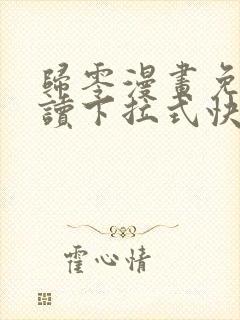 歸零漫畫免
讀下拉式快
霍心情